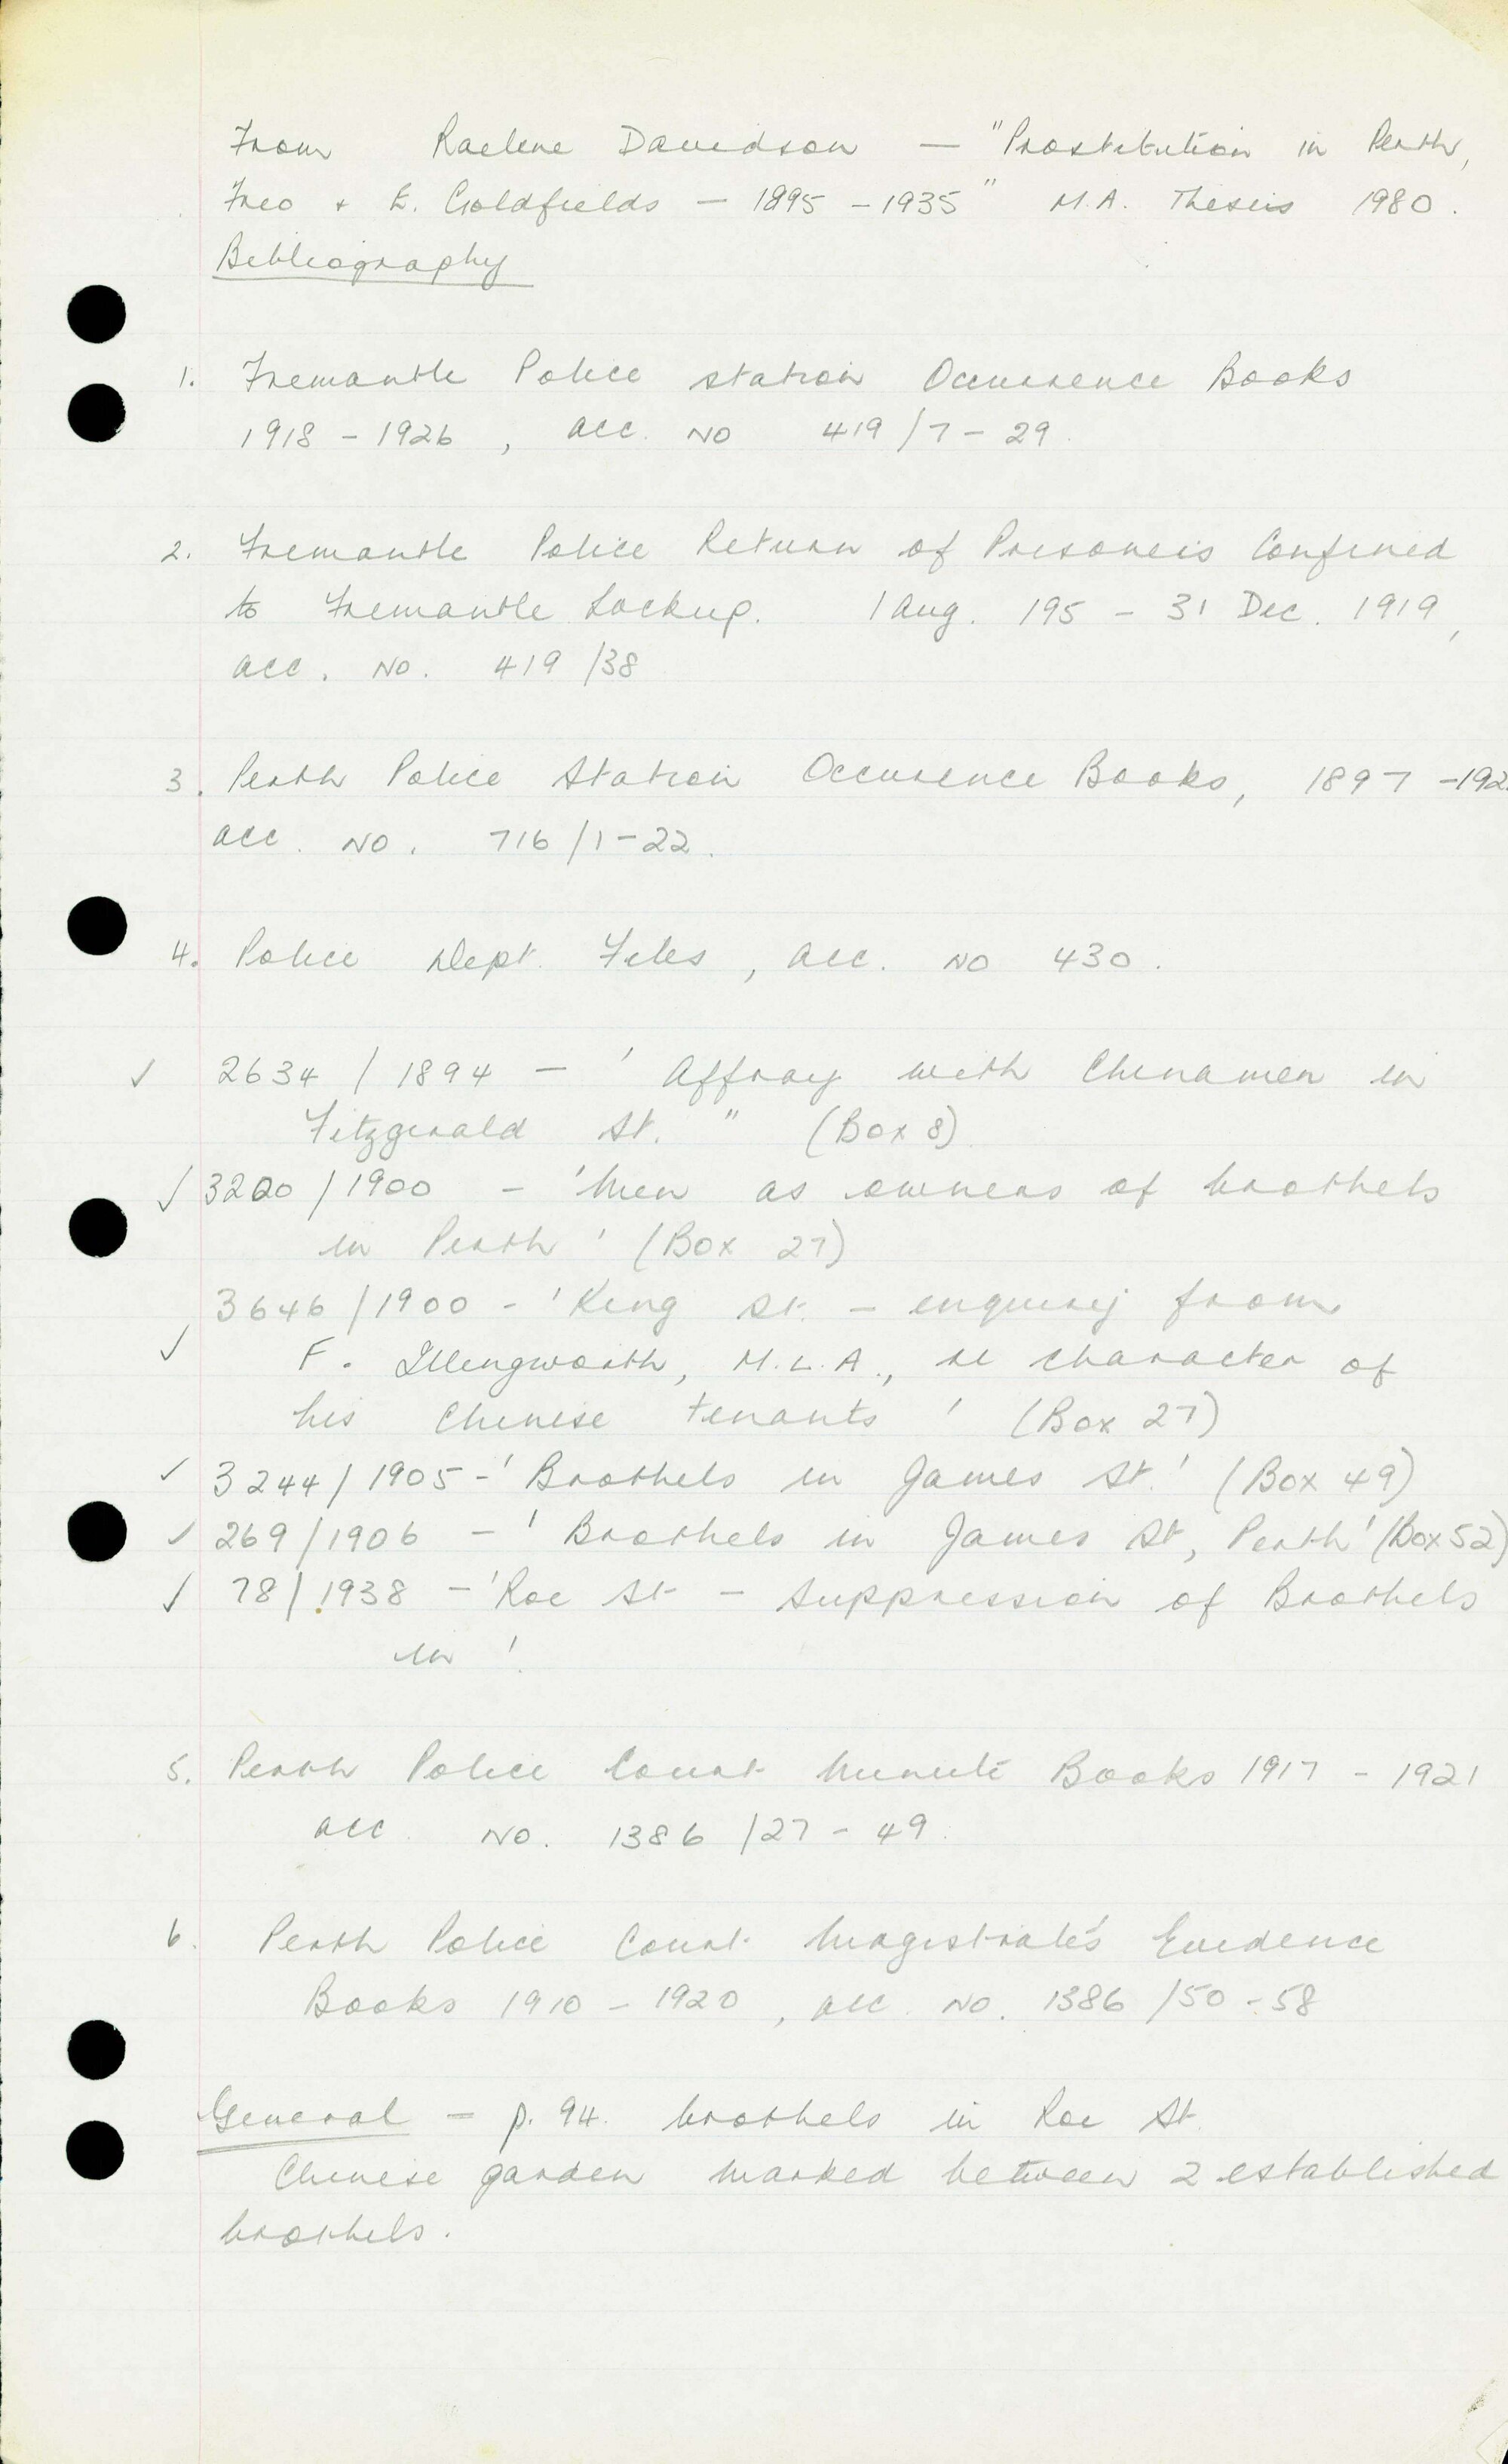 From Raelene Davidson — "Prostitution in Perth,
Freo + E. Goldfields — 1895 – 1935" M.A. Thesis 1980.
Bibliography
1. Fremantle Police Station Occurrence Books
1918 – 1926, acc. NO 419/7 – 29.
2. Fremantle Police Return of Prisoners Confined
to Fremantle Lockup. 1 Aug. 195 – 31 Dec. 1919,
acc. No. 419/38
3. Perth Police Station Occurence Books, 1897 – 192
acc. NO. 716/1 – 22.
4. Police Dept. Files, acc. NO 430.
✓ 2634 / 1894 – ' Affray with Chinamen in
Fitzgerald St. " (Box 8)
✓ 3220 / 1900 – 'Men as owners of brothels
in Perth ' (Box 27)
3646 / 1900 – 'King St. – enquiry from
✓ F. Illingworth, M.L.A., re character of
his Chinese tenants ' (Box 27)
✓ 3244 / 1905 – 'Brothels in James St.' (Box 49)
✓ 269 / 1906 – ' Brothels in James St, Perth' (Box 52)
✓ 78 / 1938 – 'Roe St – Suppression of Brothels
in '.
5. Perth Police Court Minute Books 1917 – 1921
acc. NO. 1386 / 27 – 49.
6. Perth Police Court Magistrate's Evidence
Books 1910 – 1920, acc. NO. 1386 / 50 – 58
General – p. 94. brothels in Roe St.
Chinese garden marked between 2 established
brothels.